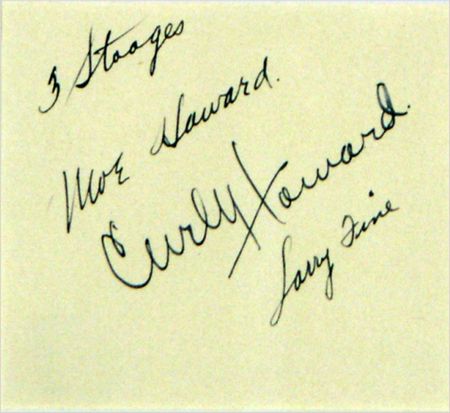 3 Stooges
Moe Howard.
Curly Howard.
Larry Fine